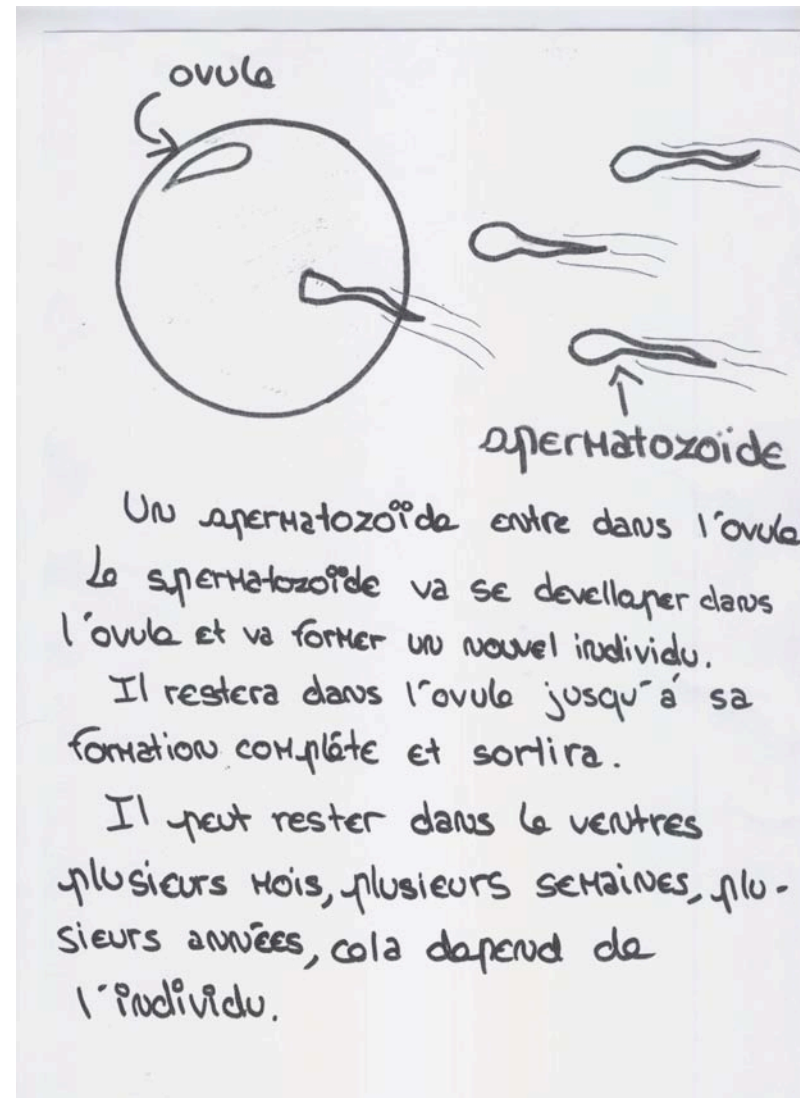 ovule
spermatozoide
Un spermatozoïde entre dans l'ovule
Le spermatozoïde va se develloper dans
l'ovule et va former un nouvel individu.
Il restera dans l'ovule jusqu'á sa
formation compléte et sortira.
Il peut rester dans le ventres
plusieurs mois, plusieurs semaines, plu-
sieurs années, cela depend de
l'individu.